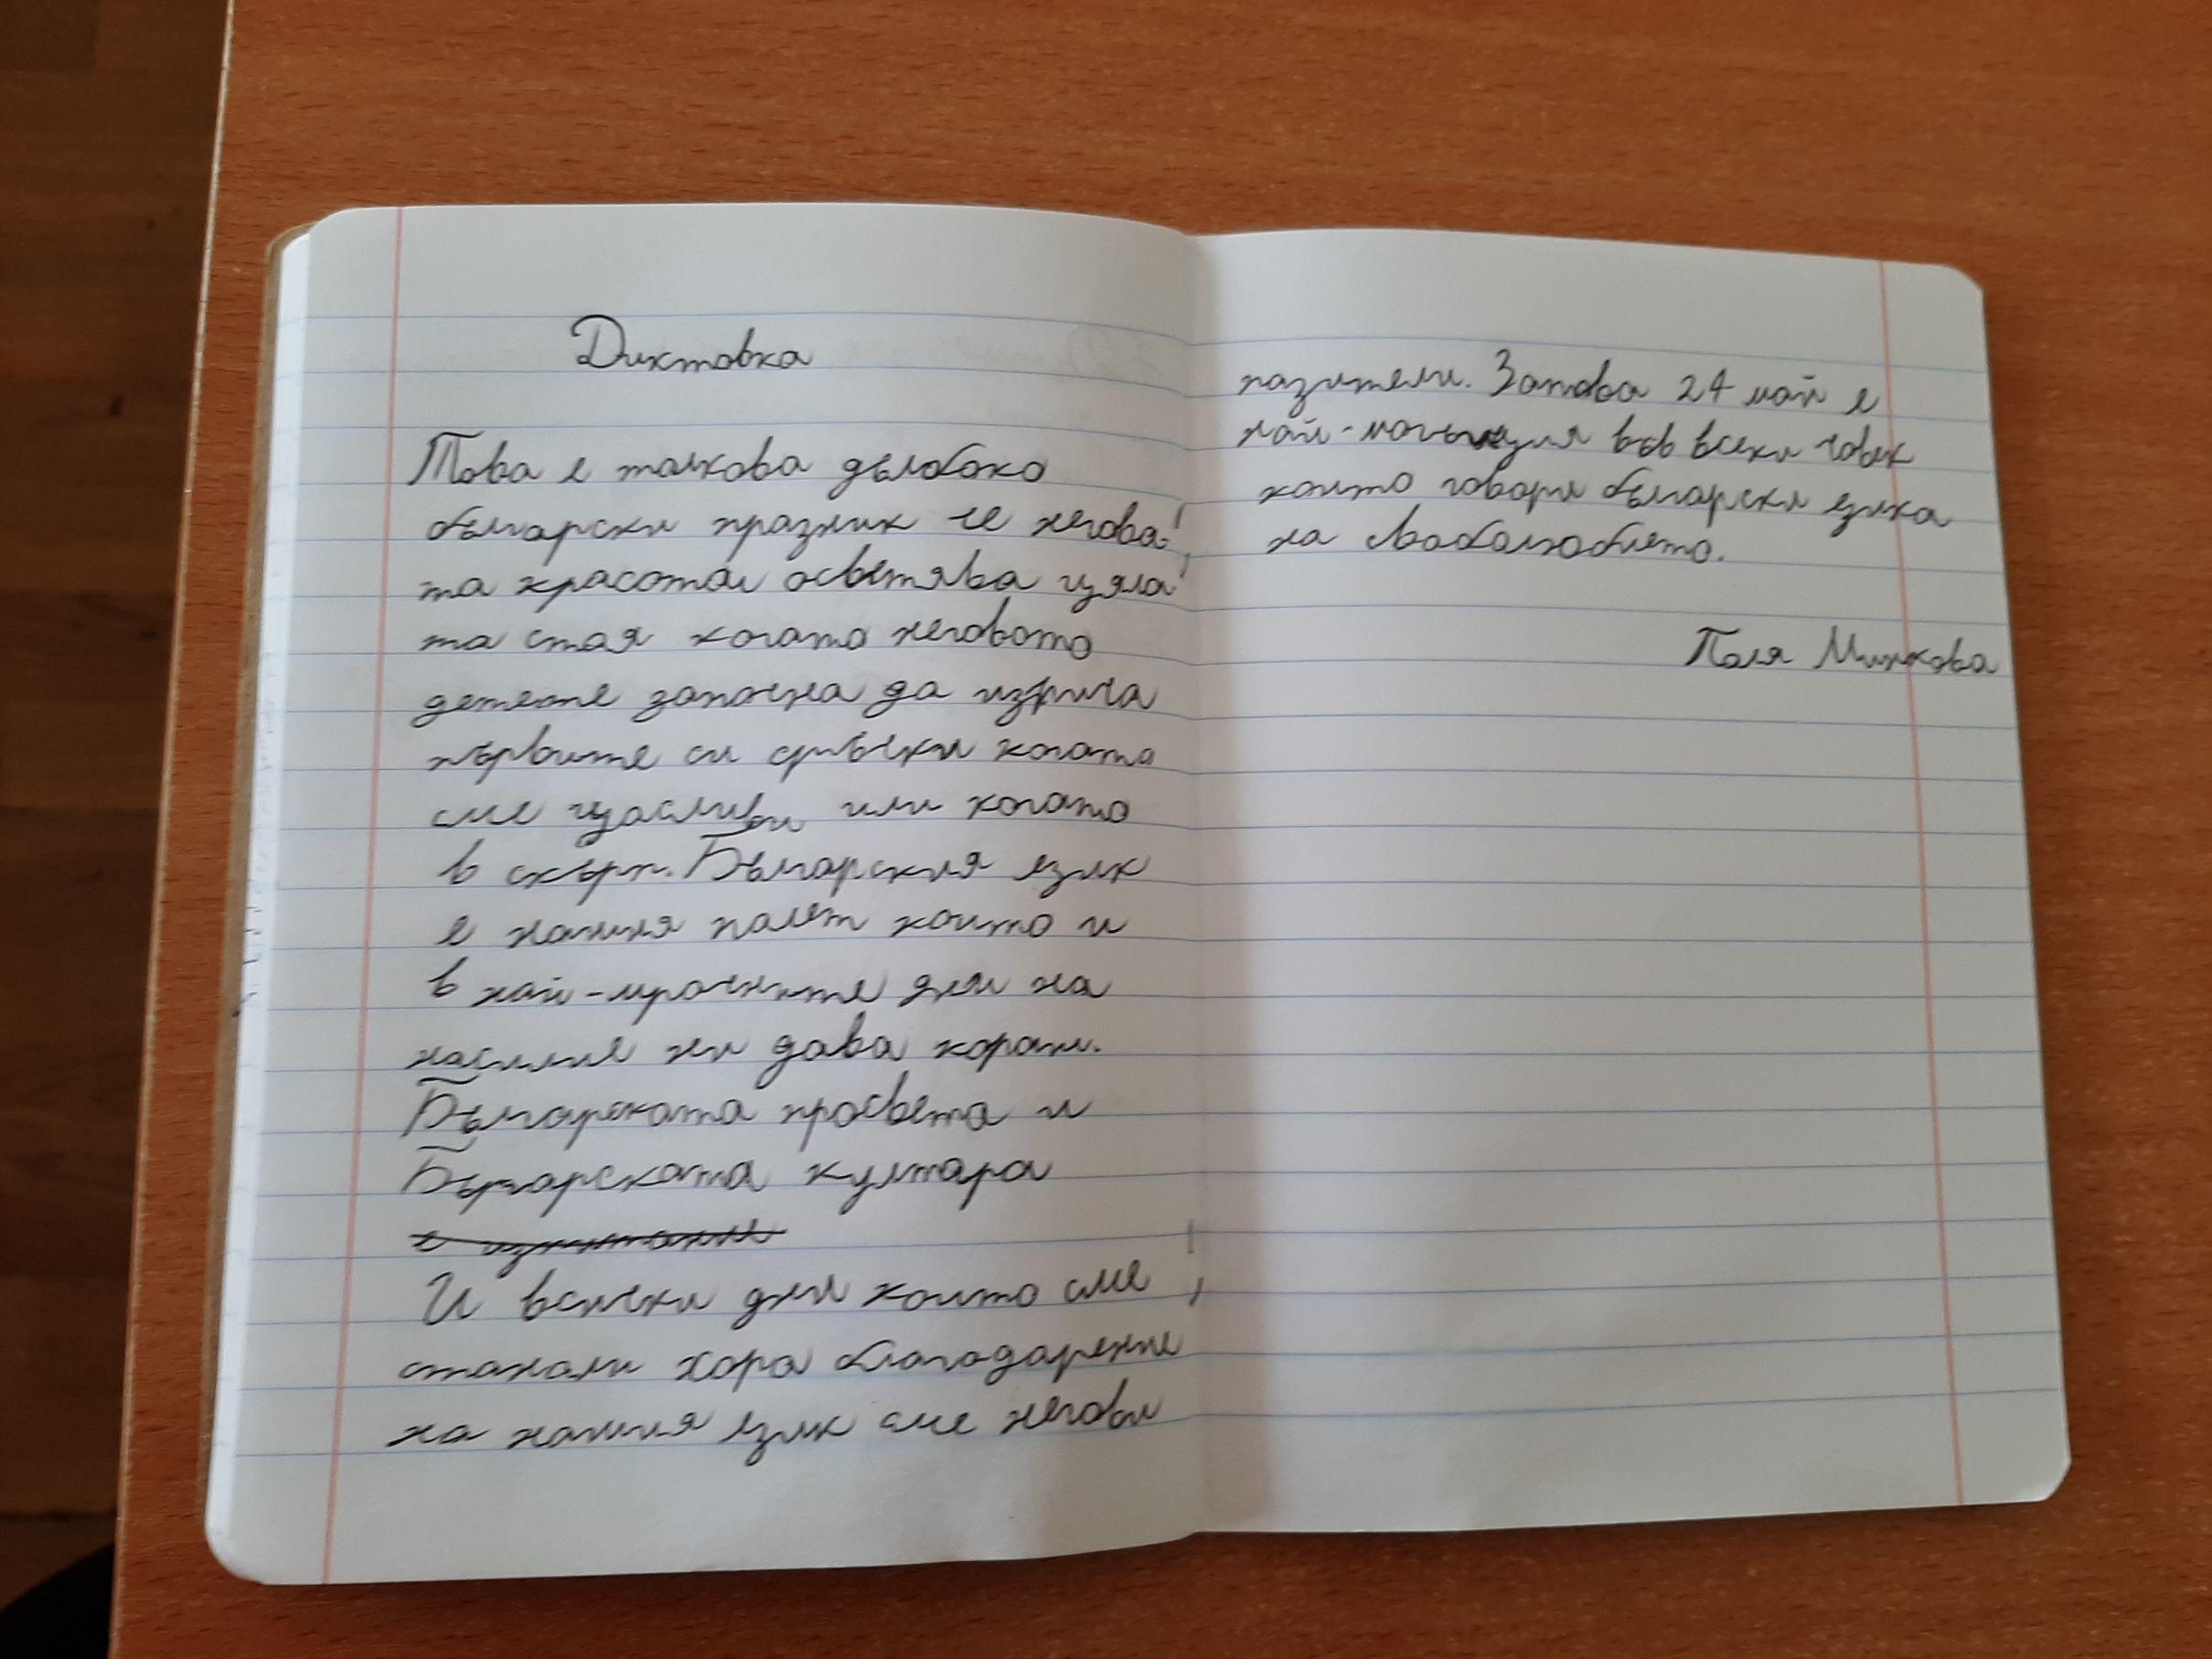 Диктовка
Това е толкова дълбоко
български празник че негова-
та красота осветява цяла
та стая когато неговото
детете започна да изрича
първите си срички когато
сме щасливи или когато
в скърп. Българския език
е нашия поет които и
в най-мрачните дни на
насилие ни дава кораж.
Българската просвета и
Българската култара
И всички дни които сме
станали хора благодарение
на нашия език сме негови
пазители. Затова 24 май е
във всеки човек
които говори български езика
на свободолюбието.
Поля Минкова